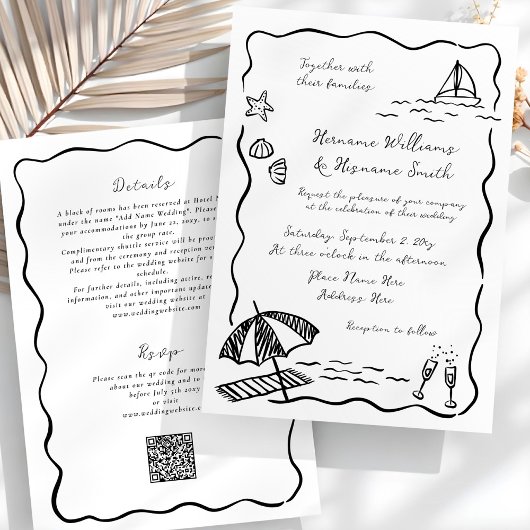 Together with
their families
Hername Williams
& Hisname Smith
Request the pleasure of your company
at the celebration of their wedding
Saturday, September 2, 20xy
At three o'clock in the afternoon
Place Name Here
Address Here
Reception to follow
Details
A block of rooms has been reserved at Hotel
under the name "Add Name Wedding". Please
your accommodations by June 21, 20xy, to
the group rate.
Complimentary shuttle service will be
and from the ceremony and reception
Please refer to the wedding website for
schedule.
For further details, including attire,
information, and other important
visit our wedding website at
www.weddingwebsite.com
Rsvp
Please scan the qr code for more
about our wedding and to
before July 5th 20xy
or visit
www.weddingwebsite.